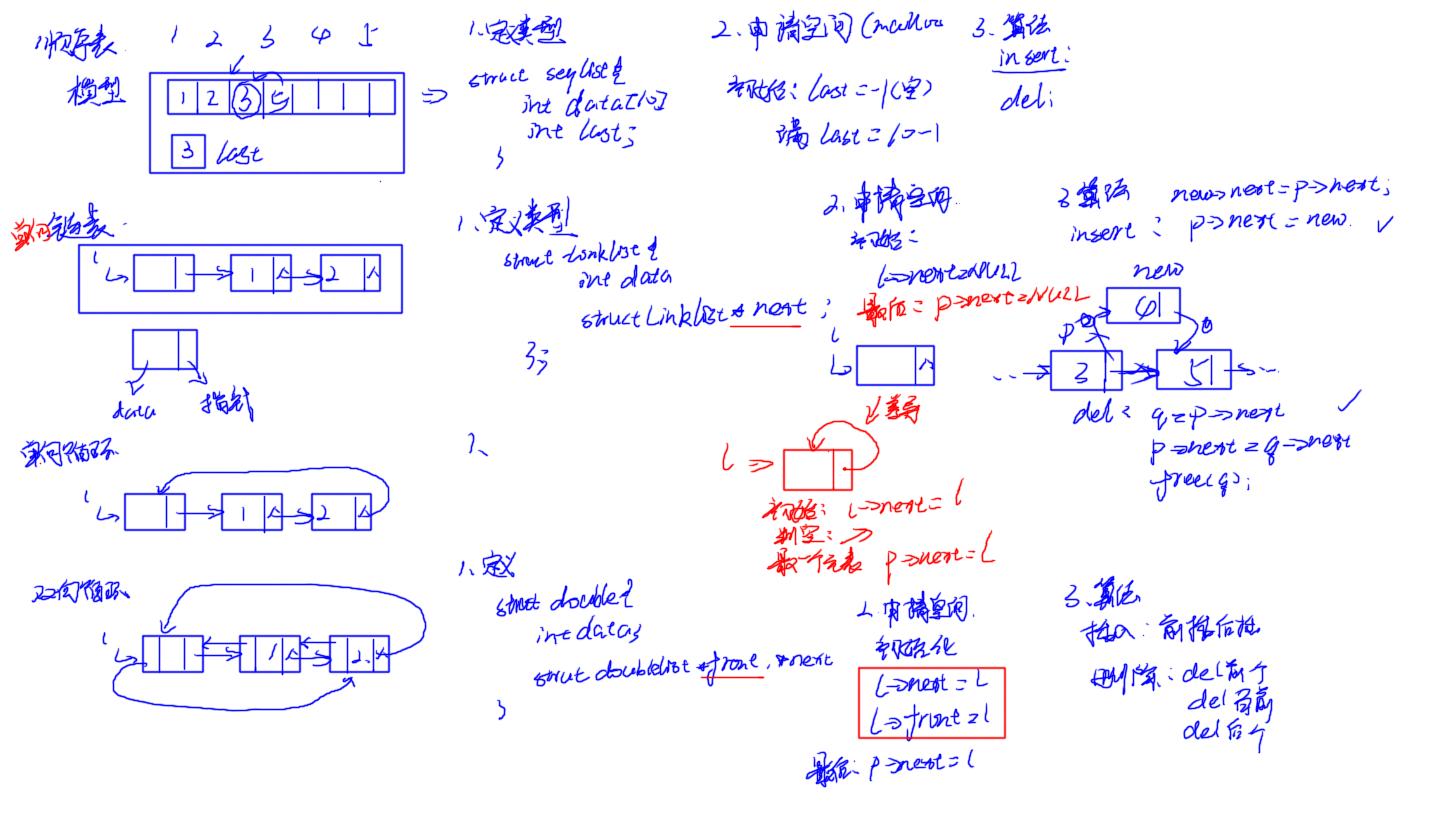 顺序表 1 2 3 4 5
模型
1 2 3 5
3 last
1、定义类型
struct seqlist{
int data[10]
int last;
}
2、申请空间 (malloc
初始: last=-1(空)
满 last=10-1
3、算法
insert:
del:
单向链表
L 1 2
data 指针
1、定义类型
struct Linklist{
int data
struct Linklist * next ;
};
2、申请空间
初始:
L->next=NULL
最后: p->next=NULL
L
差异
L =>
初始: L->next=L
判空:
最后一个元素 p->next=L
3 算法 new->next=p->next;
insert: p->next=new. ✓
new
4
p
3 5
del: q=p->next ✓
p->next=q->next
free(q);
单向循环
L 1 2
1、
双向循环
L 1 2
1、定义
struct double{
int data;
struct doublelist *front, *next
}
2、申请空间
初始化
L->next=L
L->front=L
最后: p->next=L
3、算法
插入: 前插后插
删除: del前个
del后个